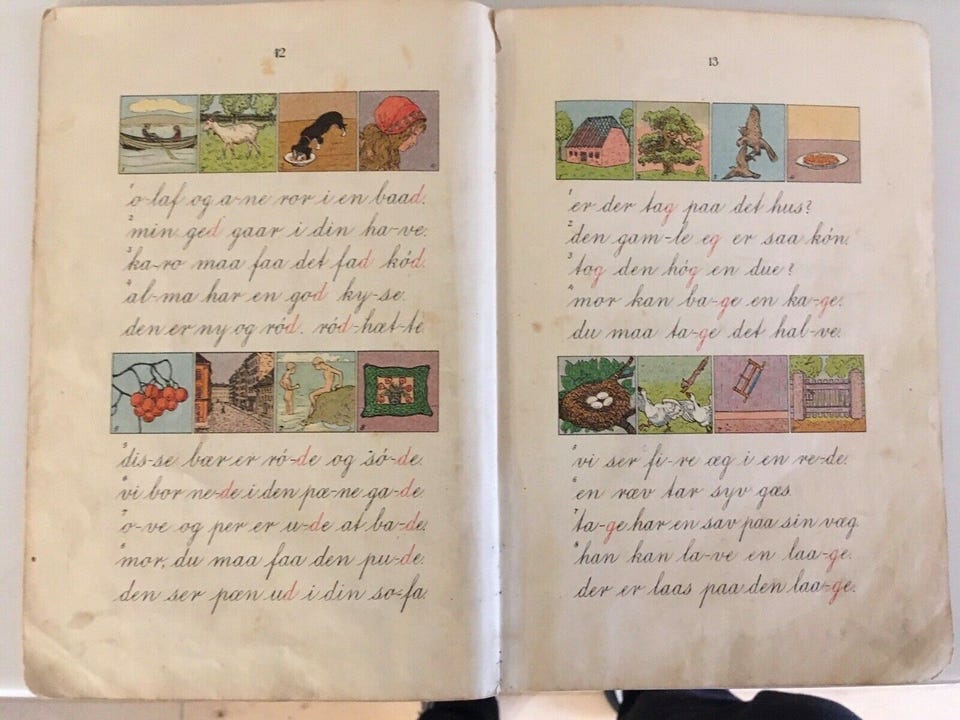 12
1 o-laf og a-ne ror i en baad.
2 min ged gaar i din ha-ve.
3 ka-ro maa faa det fad kód.
4 al-ma har en god ky-se.
den er ny og ród. ród-hæt-te.
5 dis-se bær er ró-de og só-de.
6 vi bor ne-de i den pæ-ne ga-de.
7 o-ve og per er u-de at ba-de.
8 mor, du maa faa den pu-de.
den ser pæn ud i din so-fa.
13
1 er der tag paa det hus?
2 den gam-le eg er saa kón.
3 tog den hóg en due?
4 mor kan ba-ge en ka-ge.
du maa ta-ge det hal-ve.
5 vi ser fi-re æg i en re-de.
6 en ræv tar syv gæs.
7 ta-ge har en sav paa sin væg.
8 han kan la-ve en laa-ge.
der er laas paa den laa-ge.